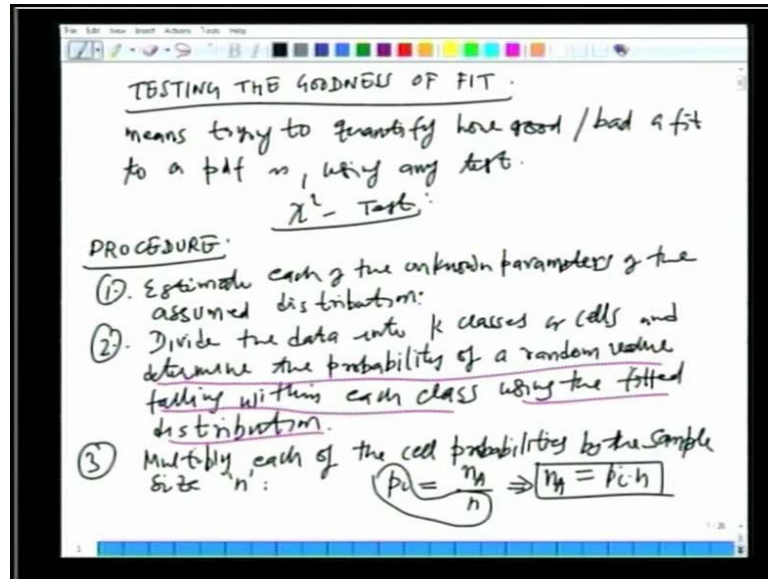 File Edit View Insert Actions Tools Help
TESTING THE GOODNESS OF FIT.
means trying to quantify how good / bad a fit
to a pdf is, using any test.
χ² - Test:
PROCEDURE:
①. Estimate each of the unknown parameters of the
assumed distribution:
②. Divide the data into k classes or cells and
determine the probability of a random value
falling within each class using the fitted
distribution.
③ Multiply each of the cell probabilities by the sample
size 'n': pi = nA / n ⇒ nA = pi.n
1